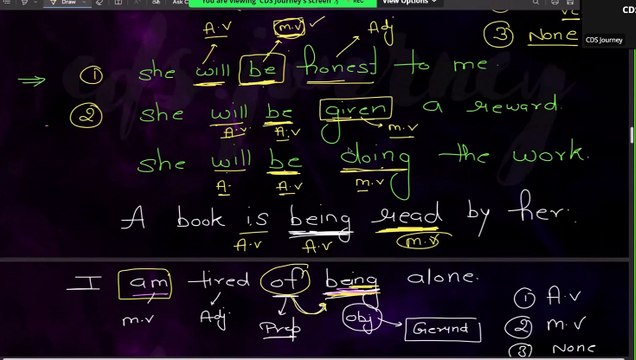 You are viewing CDS Journey's screen
View Options
CDS Journey
A.V m.v ✓ Adj
③ None
⇒ ① she will be honest to me.
② she will be given a reward.
A.V A.V m.v
she will be doing the work.
A. A.V m.v
A book is being read by her.
A.V A.V m.v
I am tired of being alone.
m.v Adj Prep obj → Gerund
① A.V
② m.v
③ None